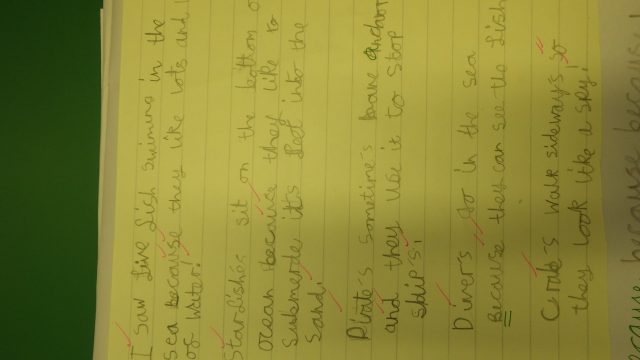 I saw five fish swiming in the
sea because they like lots and l
of water.
Starfishes sit on the bottom o
ocean because they like to
submerde it's feet into the
sand.
Pirate's sometime's have anchor
and they use it to stop
ship's.
Divers go in the sea
Because they can see the fish
Crabs walk sideways so
they look like a spy.
because